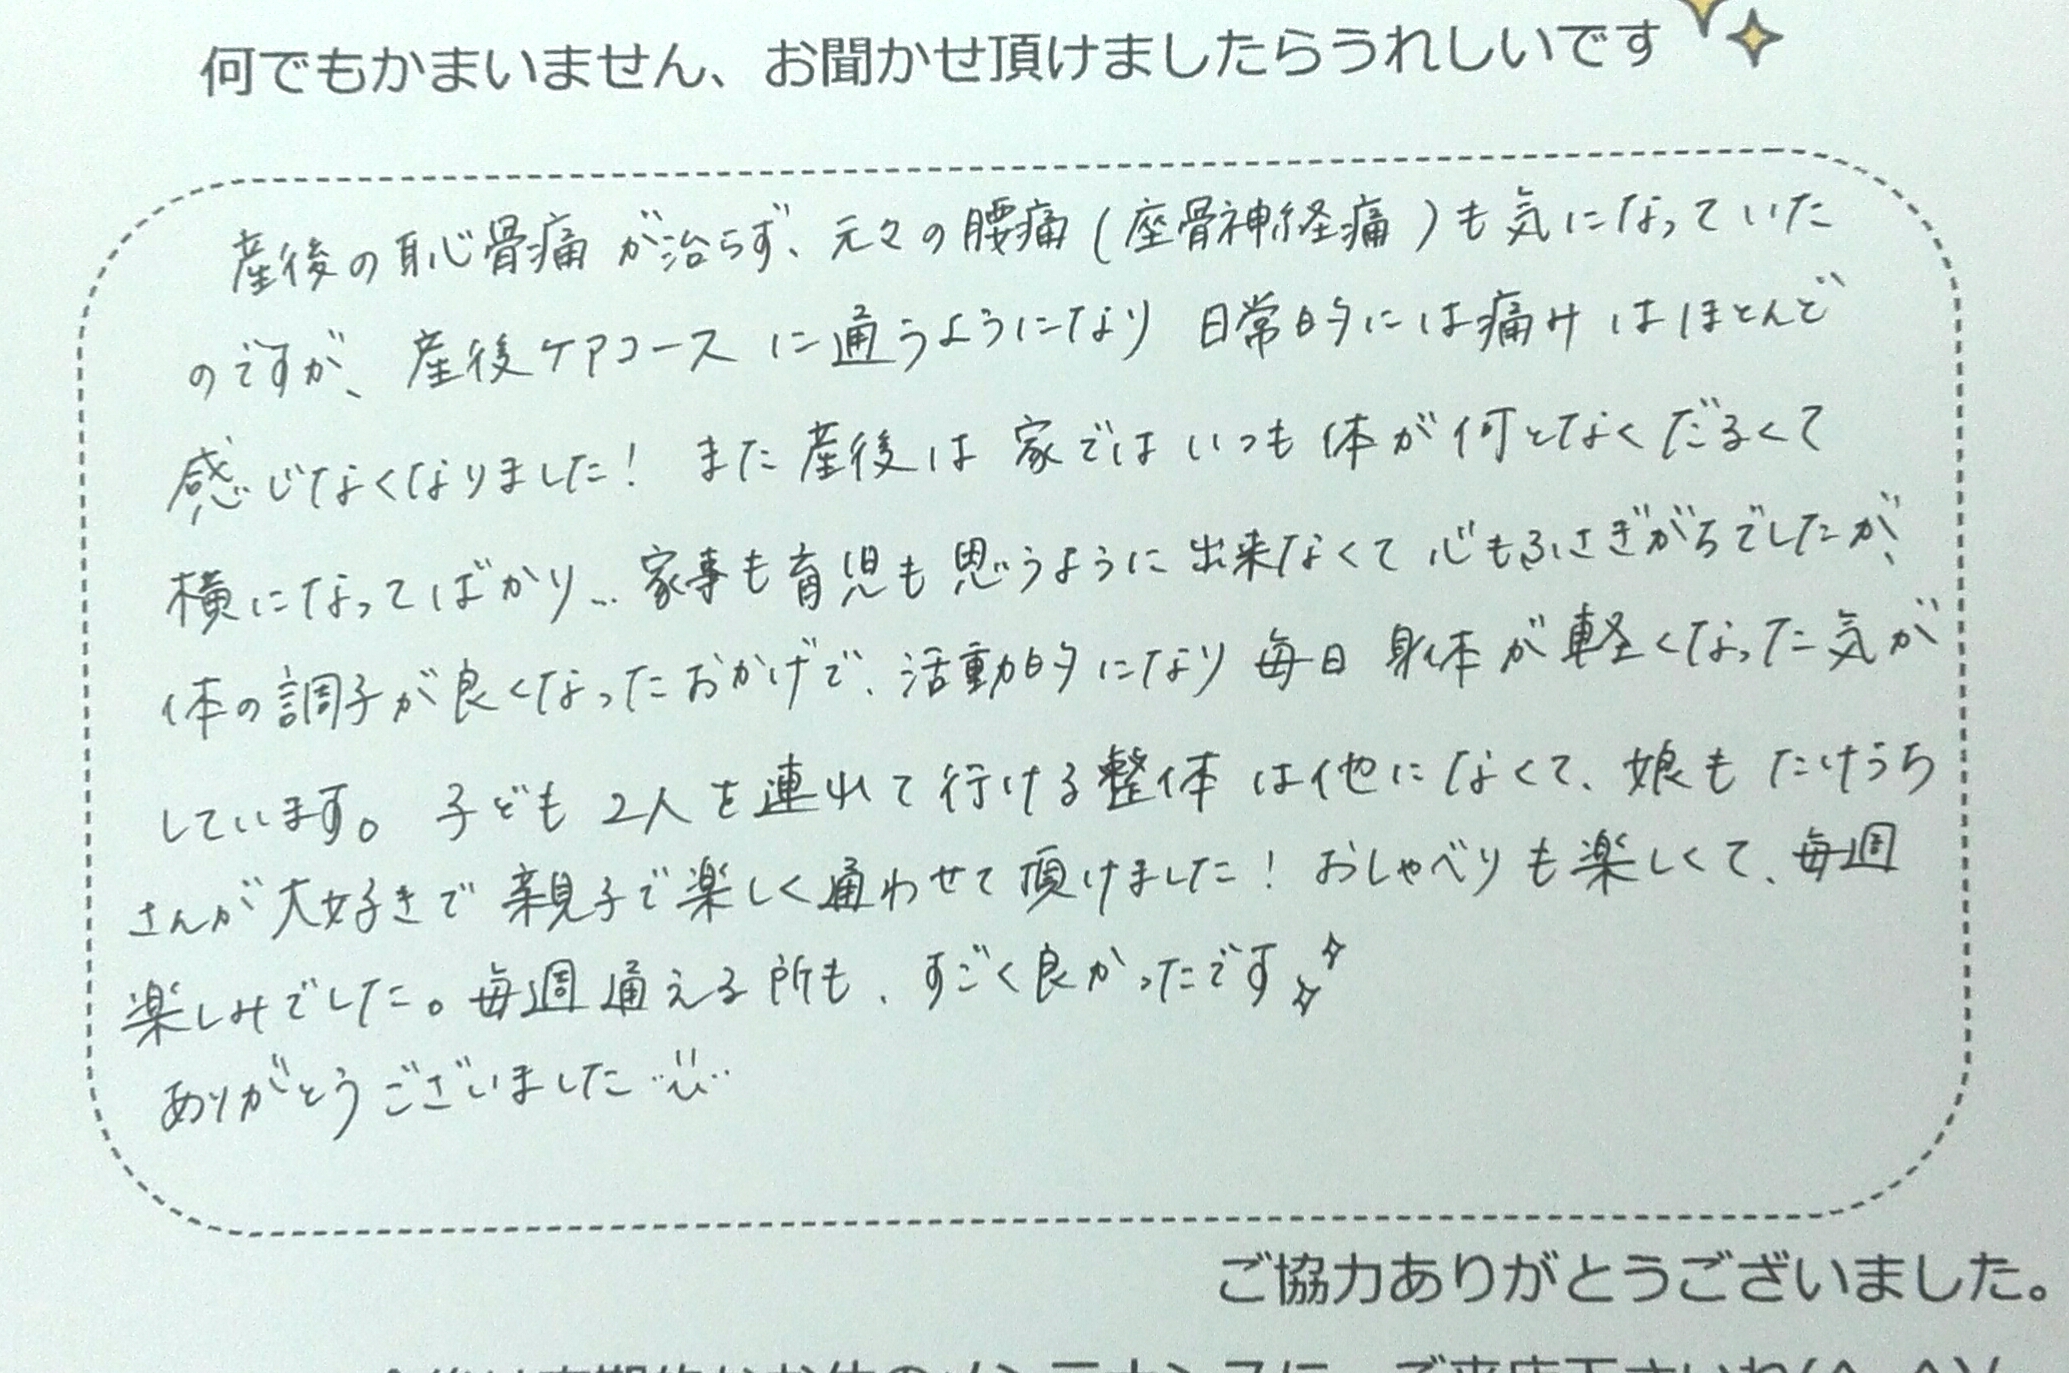 何でもかまいません、お聞かせ頂けましたらうれしいです
産後の恥骨痛が治らず、元々の腰痛(座骨神経痛)も気になっていた
のですが、産後ケアコースに通うようになり日常的には痛みはほとんど
感じなくなりました!また産後は家ではいつも体が何となくだるくて
横になってばかり…家事も育児も思うように出来なくて心もふさぎがちでしたが、
体の調子が良くなったおかげで、活動的になり毎日身体が軽くなった気が
しています。子ども2人を連れて行ける整体は他になくて、娘もたけうち
さんが大好きで親子で楽しく通わせて頂けました!おしゃべりも楽しくて、毎週
楽しみでした。毎週通える所も、すごく良かったです
ありがとうございました
ご協力ありがとうございました。